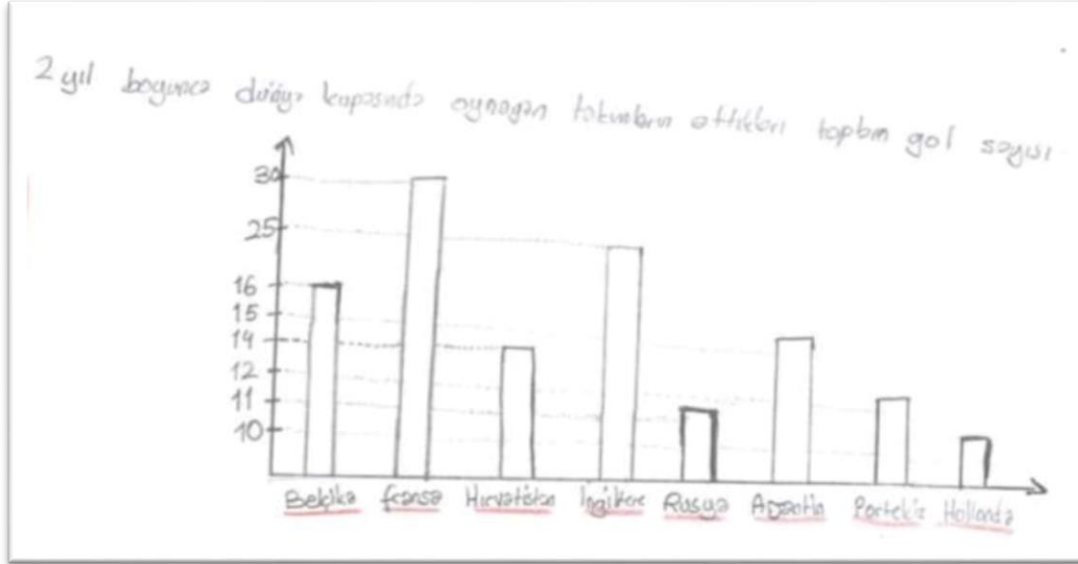 2 yıl boyunca dünya kupasında oynayan takımların attıkları toplam gol sayısı
30
25
16
15
14
12
11
10
Belçika fransa Hırvatistan İngiltere Rusya Arjantin Portekiz Hollanda